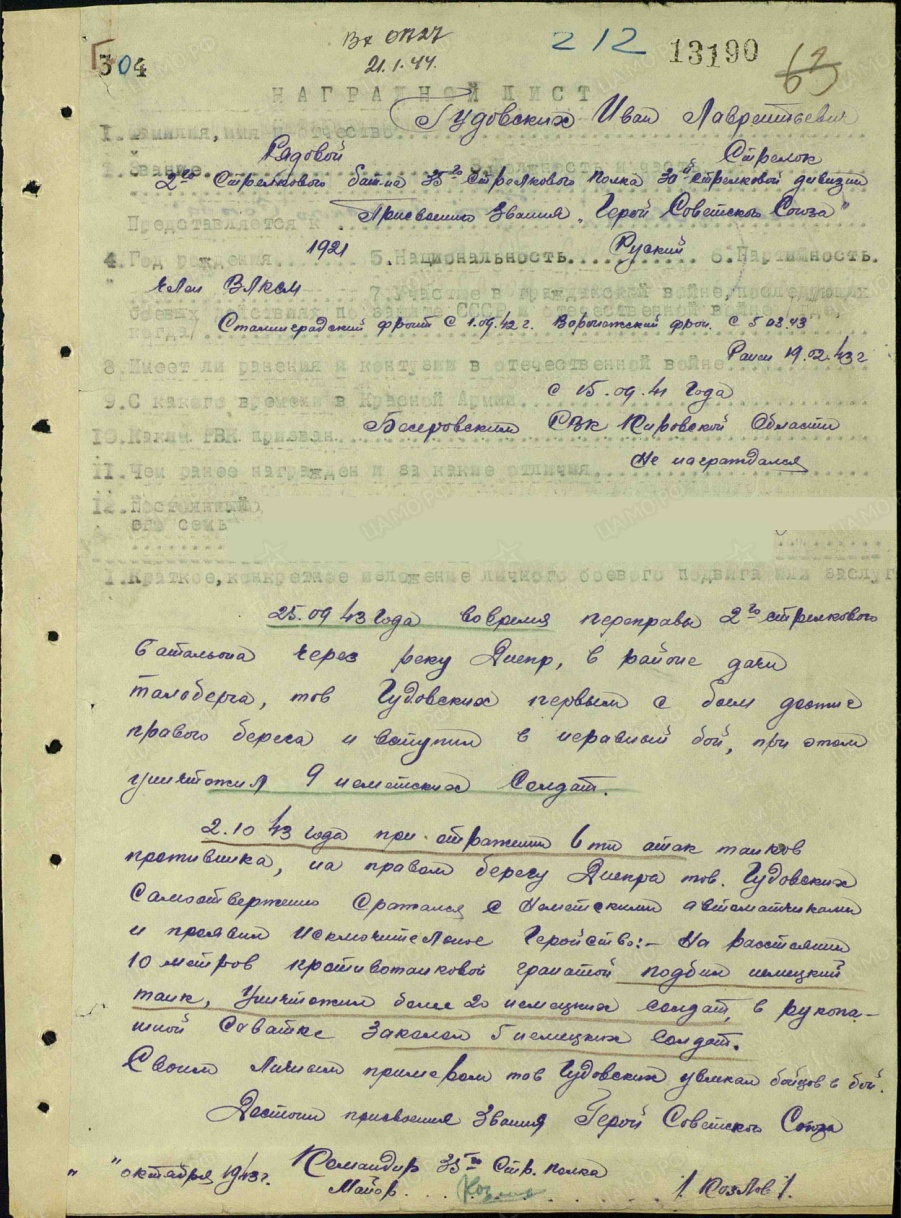 Вх 0727
212
13190
63
304
21.1.44.
НАГРАДНОЙ ЛИСТ
1. Фамилия, имя и отчество Гудовских Иван Лаврентьевич
2. Звание Рядовой 3. Должность и часть Стрелок
2го Стрелкового бат-на 35го Стрелкового полка 30й стрелковой дивизии
Представляется к Присвоению Звания „Герой Советского Союза"
4. Год рождения 1921 5. Национальность Руский 6. Партийность.
член ВЛКСМ 7. Участие в гражданской войне, последующих
боевых действиях по защите СССР и отечественной войне /где,
когда/ Сталинградский фронт с 1.09.42 г. Воронежский фрон. с 5 03.43
8. Имеет ли ранения и контузии в отечественной войне Ранен 19.02.43 г
9. С какого времени в Красной Армии с 15.09.41 года
10. Каким РВК призван Бисеровским РВК Кировской Области
11. Чем ранее награжден и за какие отличия Не награждался
12. Постоянный
его семь
I. Краткое, конкретное изложение личного боевого подвига или заслуг
25.09.43 года вовремя переправы 2го стрелкового
батальона через реку Днепр, в районе дачи
тов. Гудовских первым с боем достиг
правого берега и вступил в неравный бой, при этом
уничтожил 9 немецких Солдат.
2.10.43 года при отражении 6ти атак танков
противника, на правом берегу Днепра тов. Гудовских
самоотвержено сражался с немецкими автоматчиками
и проявил исключительное Геройство:- На расстоянии
10 метров противотанковой гранатой подбил немецкий
танк, Уничтожил более 20 немецких солдат, в рукопа-
шной Сватке Заколол 5 немецких Солдат.
Своим личным примером тов Гудовских увлекал бойцов в бой.
Достоин присвоения Звания Герой Советского Союза
" " октября 1943 г. Командир 35го Стр. полка
Майор Козлов /Козлов/.